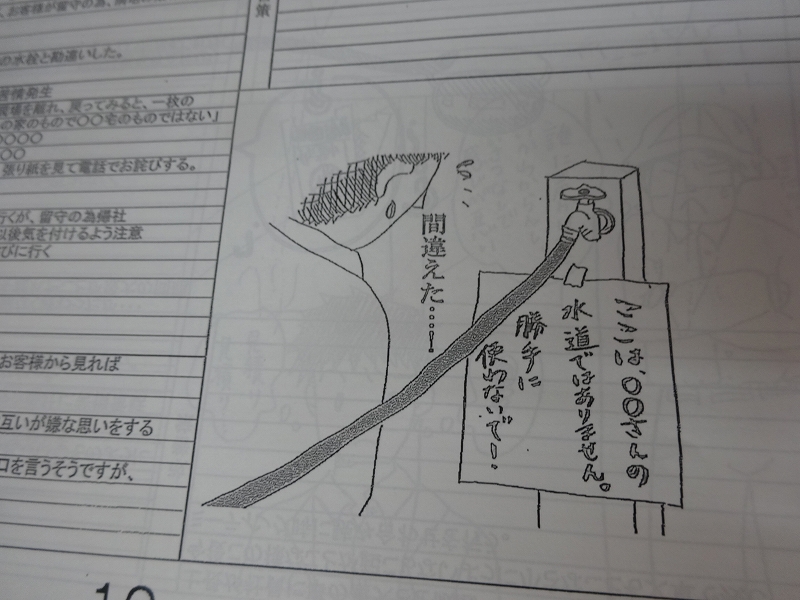 策
、お客様が留守の為、
の水栓と勘違いした。
苦情発生
現場を離れ、戻ってみると、一枚の
の家のもので〇〇宅のものではない」
〇〇〇〇
〇〇
張り紙を見て電話でお詫びする。
行くが、留守の為帰社
以後気を付けるよう注意
びに行く
お客様から見れば
互いが嫌な思いをする
口を言うそうですが、
間違えた…!
ここは、〇〇さんの
水道ではありません。
勝手に
使わないで!